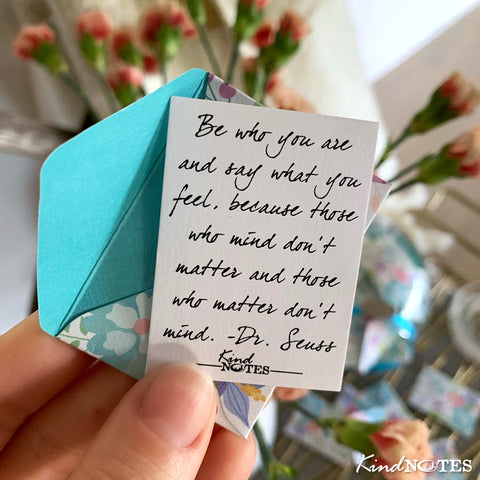 Be who you are
and say what you
feel, because those
who mind don't
matter and those
who matter don't
mind. -Dr. Seuss
Kind
NOTES
KindNOTES